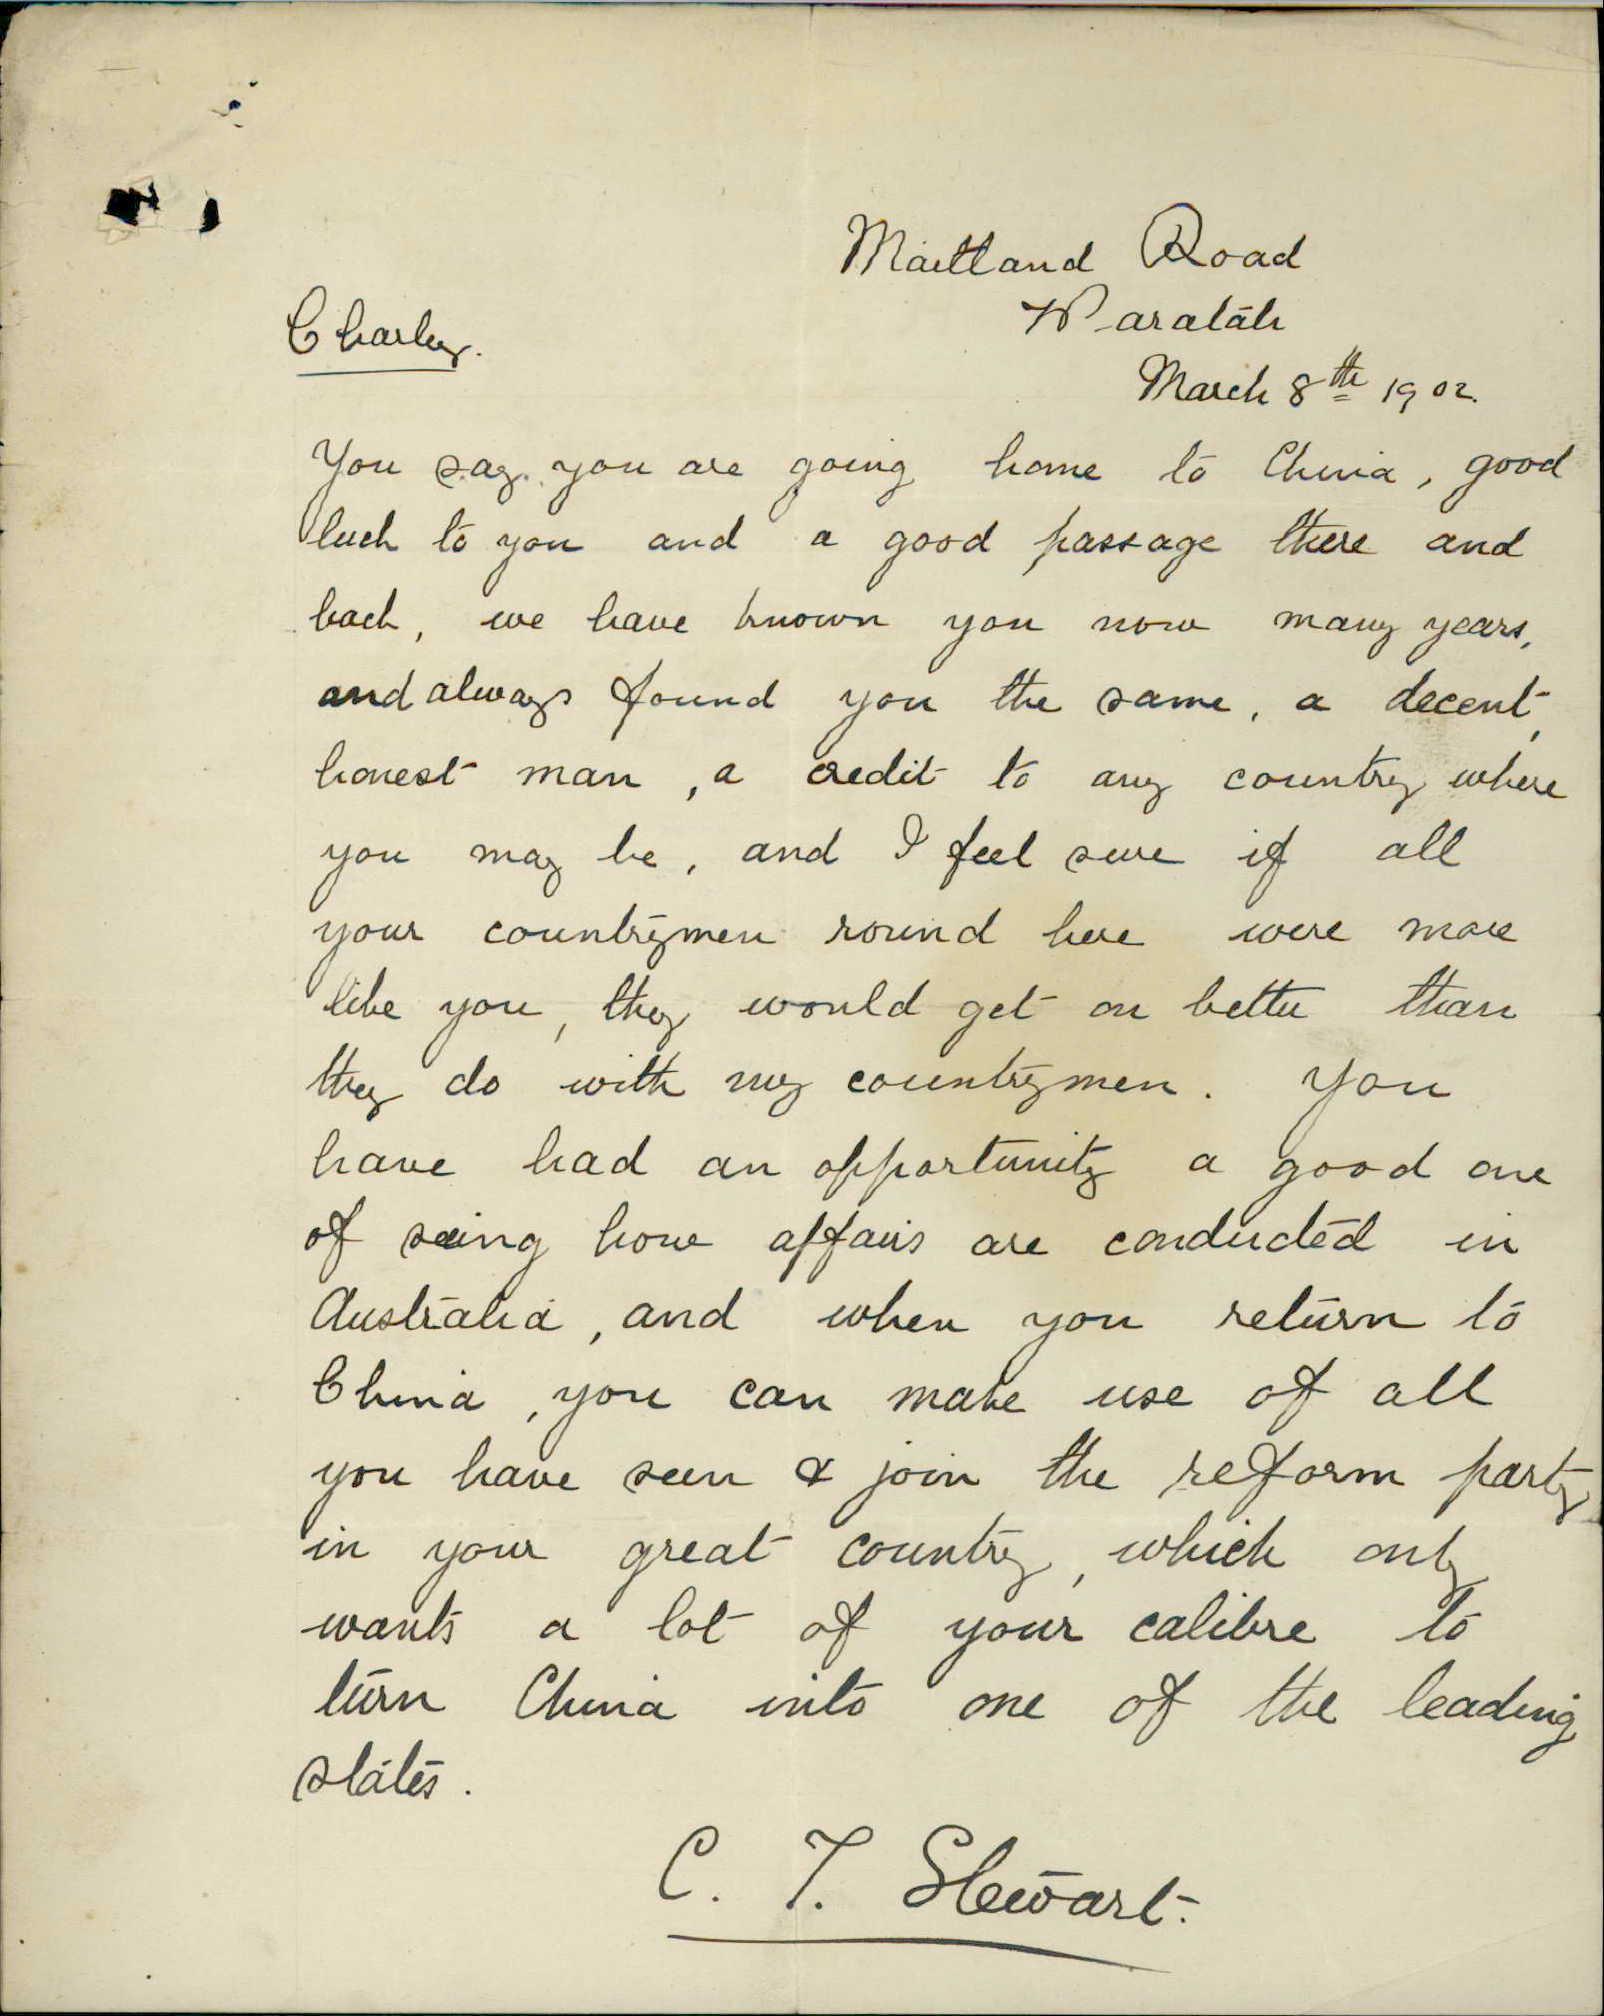 Maitland Road
Waratah
Charley.
March 8th 1902.
You say you are going home to China, good
luck to you and a good passage there and
back, we have known you now many years,
and always found you the same, a decent,
honest man, a credit to any country where
you may be, and I feel sure if all
your countrymen round here were more
like you, they would get on better than
they do with my countrymen. You
have had an opportunity a good one
of seeing how affairs are conducted in
Australia, and when you return to
China, you can make use of all
you have seen & join the reform party
in your great country, which only
wants a lot of your calibre to
turn China into one of the leading
states.
C. T. Stewart.